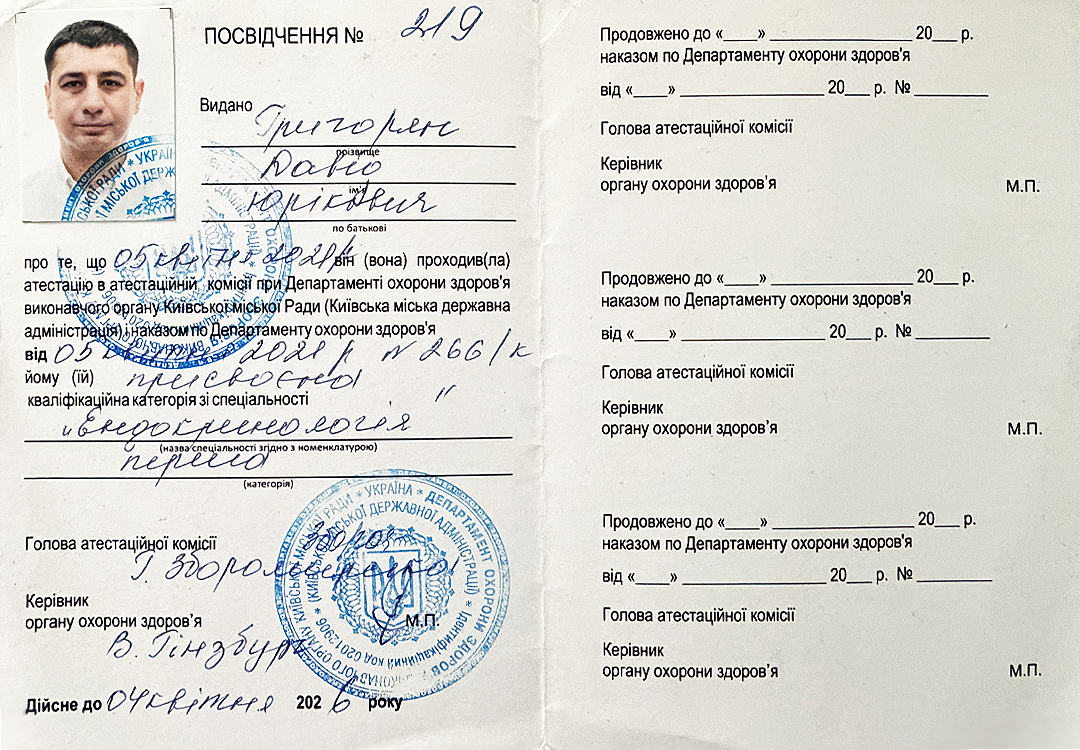 ПОСВІДЧЕННЯ № 219
Видано Григорян
прізвище
Давід
ім'я
Юрікович
по батькові
про те, що 05 квітня 2021 р він (вона) проходив(ла)
атестацію в атестаційній комісії при Департаменті охорони здоров'я
виконавчого органу Київської міської Ради (Київська міська державна
адміністрація), наказом по Департаменту охорони здоров'я
від 05 квітня 2021 р N 266/к
йому (їй) присвоєна
кваліфікаційна категорія зі спеціальності
"Ендокринологія"
(назва спеціальності згідно з номенклатурою)
перша
(категорія)
Голова атестаційної комісії
Г.
Керівник
органу охорони здоров'я М.П.
В. Гінзбург
Дійсне до 04 квітня 2026 року
УКРАЇНА * ДЕПАРТАМЕНТ ОХОРОНИ ЗДОРОВ'Я
ВИКОНАВЧОГО ОРГАНУ КИЇВСЬКОЇ МІСЬКОЇ РАДИ
(КИЇВСЬКОЇ МІСЬКОЇ ДЕРЖАВНОЇ АДМІНІСТРАЦІЇ)
Ідентифікаційний код 02012906
Продовжено до «____» ________________ 20___ р.
наказом по Департаменту охорони здоров'я
від «____» ________________ 20___ р. № _________
Голова атестаційної комісії
Керівник
органу охорони здоров'я М.П.
Продовжено до «____» ________________ 20___ р.
наказом по Департаменту охорони здоров'я
від «____» ________________ 20___ р. № _________
Голова атестаційної комісії
Керівник
органу охорони здоров'я М.П.
Продовжено до «____» ________________ 20___ р.
наказом по Департаменту охорони здоров'я
від «____» ________________ 20___ р. № _________
Голова атестаційної комісії
Керівник
органу охорони здоров'я М.П.